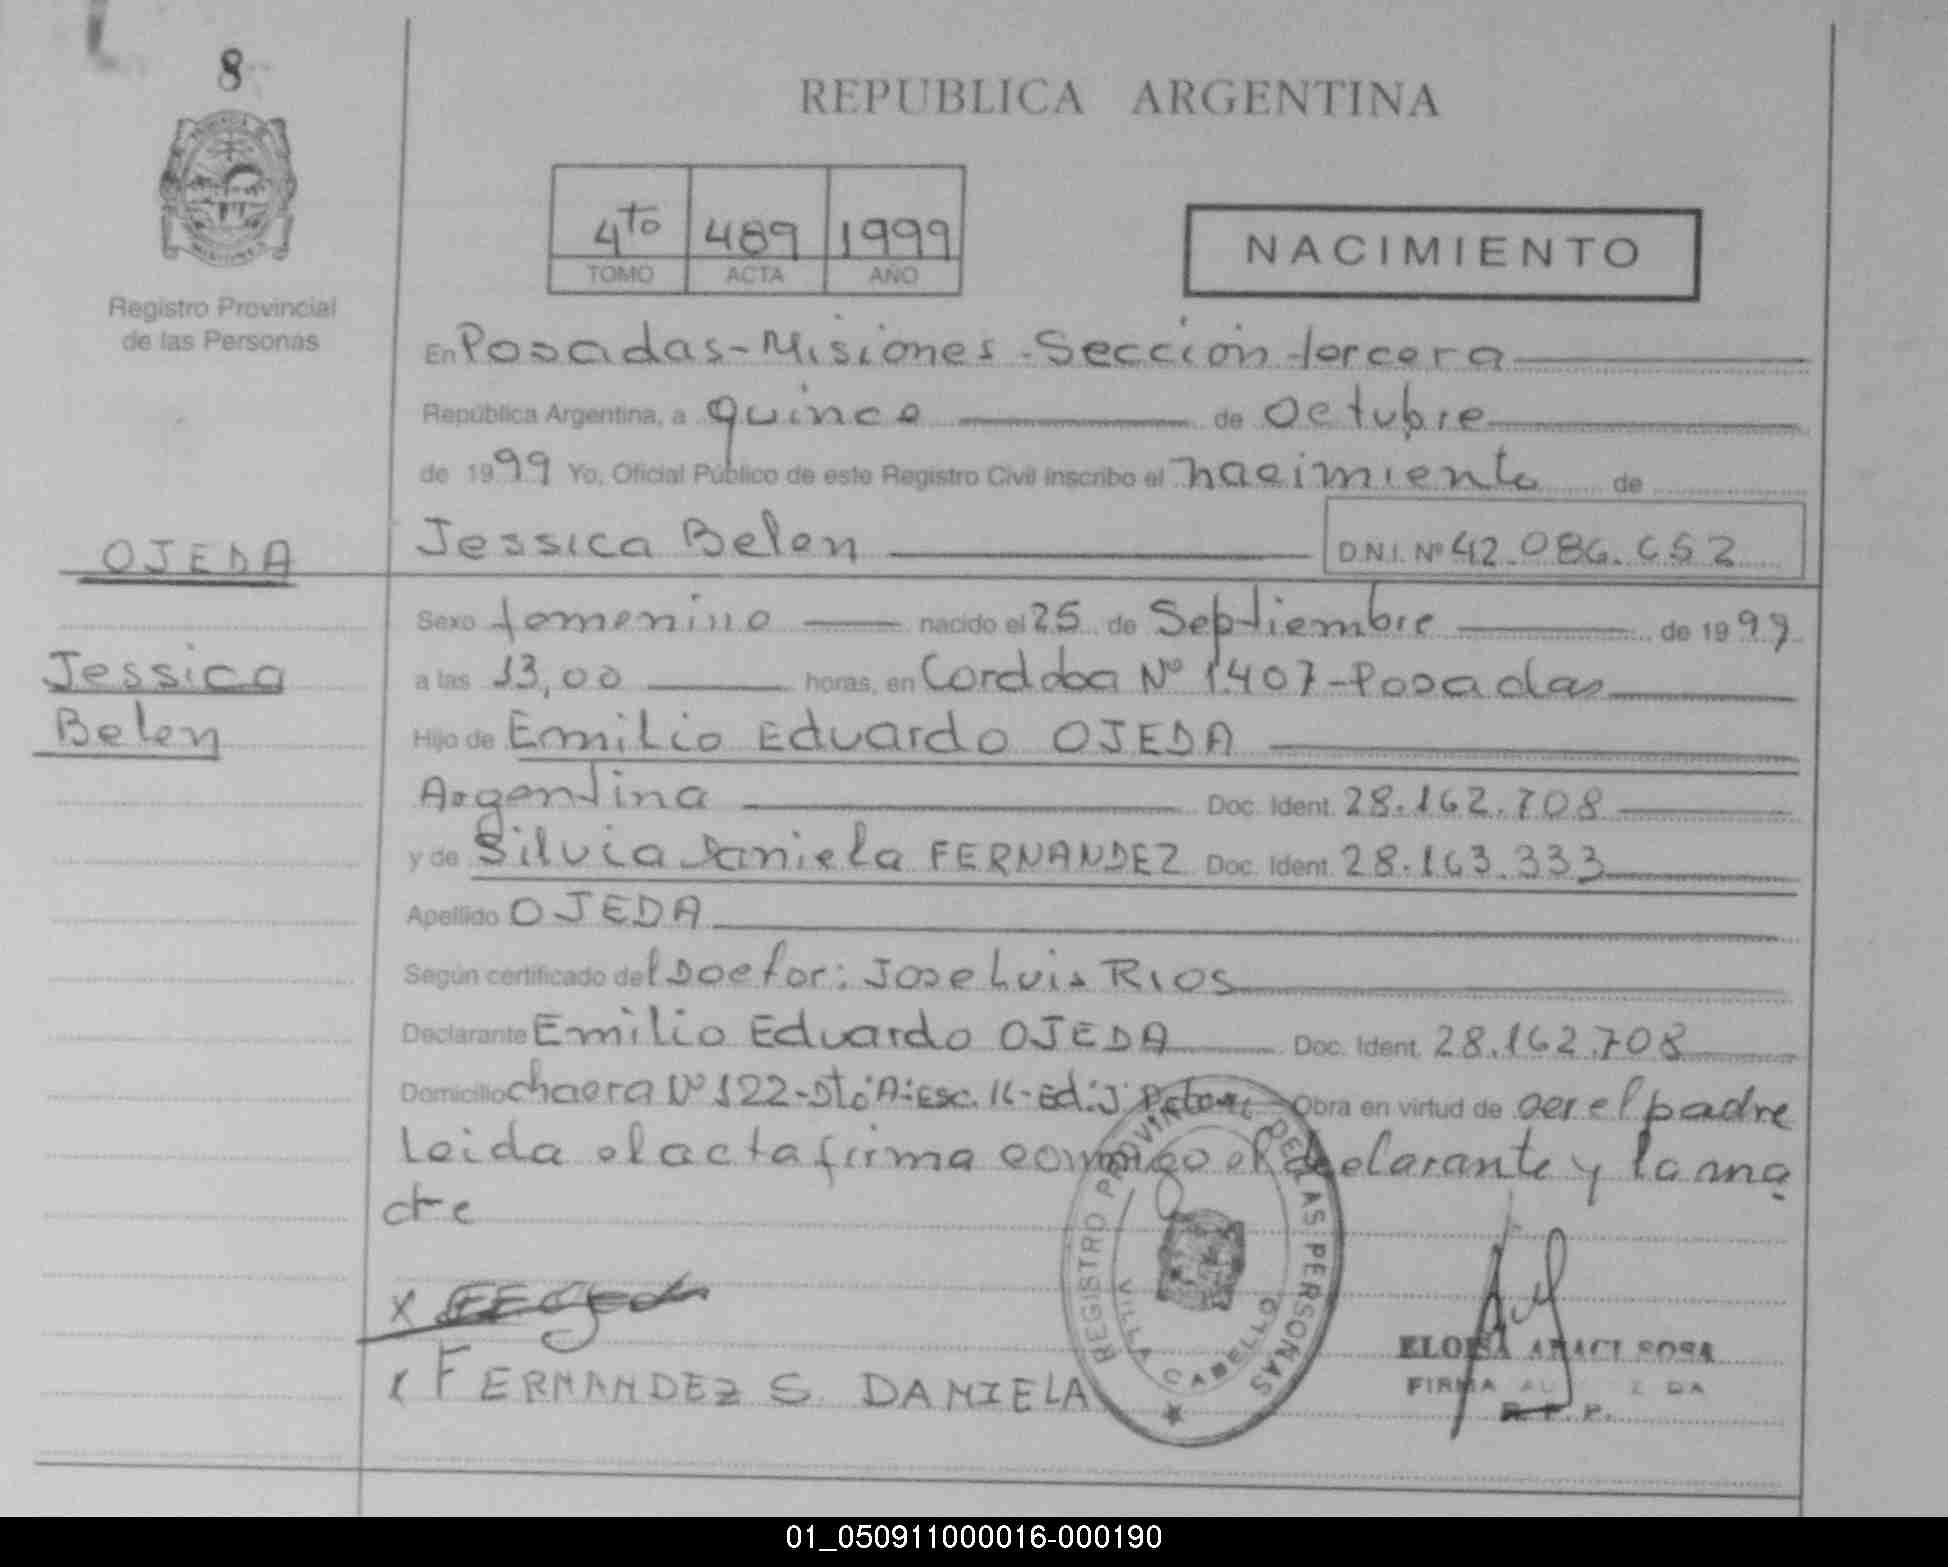 8
REPUBLICA ARGENTINA
4to 489 1999
TOMO ACTA AÑO
NACIMIENTO
Registro Provincial
de las Personas
En Posadas-Misiones-Sección tercera
República Argentina, a quince de Octubre
de 1999 Yo, Oficial Público de este Registro Civil inscribo el nacimiento de
Jessica Belen D.N.I. Nº 42.086.652
OJEDA
Jessica
Belen
Sexo femenino nacido el 25 de Septiembre de 1999
a las 13,00 horas, en Cordoba Nº 1.407-Posadas
Hijo de Emilio Eduardo OJEDA
Argentina Doc. Ident. 28.162.708
y de Silvia Daniela FERNANDEZ Doc. Ident. 28.163.333
Apellido OJEDA
Según certificado del Doctor: Jose Luis RIOS
Declarante Emilio Eduardo OJEDA Doc. Ident. 28.162.708
Domicilio chacra Nº 122-Dto:A:Esc. 16-Ed:J Obra en virtud de ser el padre
leida el acta firma conmigo el declarante y la ma
dre
X
X FERNANDEZ S. DANIELA
REGISTRO PROVINCIAL DE LAS PERSONAS
VILLA CABELLO
ELOISA ARACI SOSA
FIRMA AUTORIZADA
R. P. P.
01_050911000016-000190